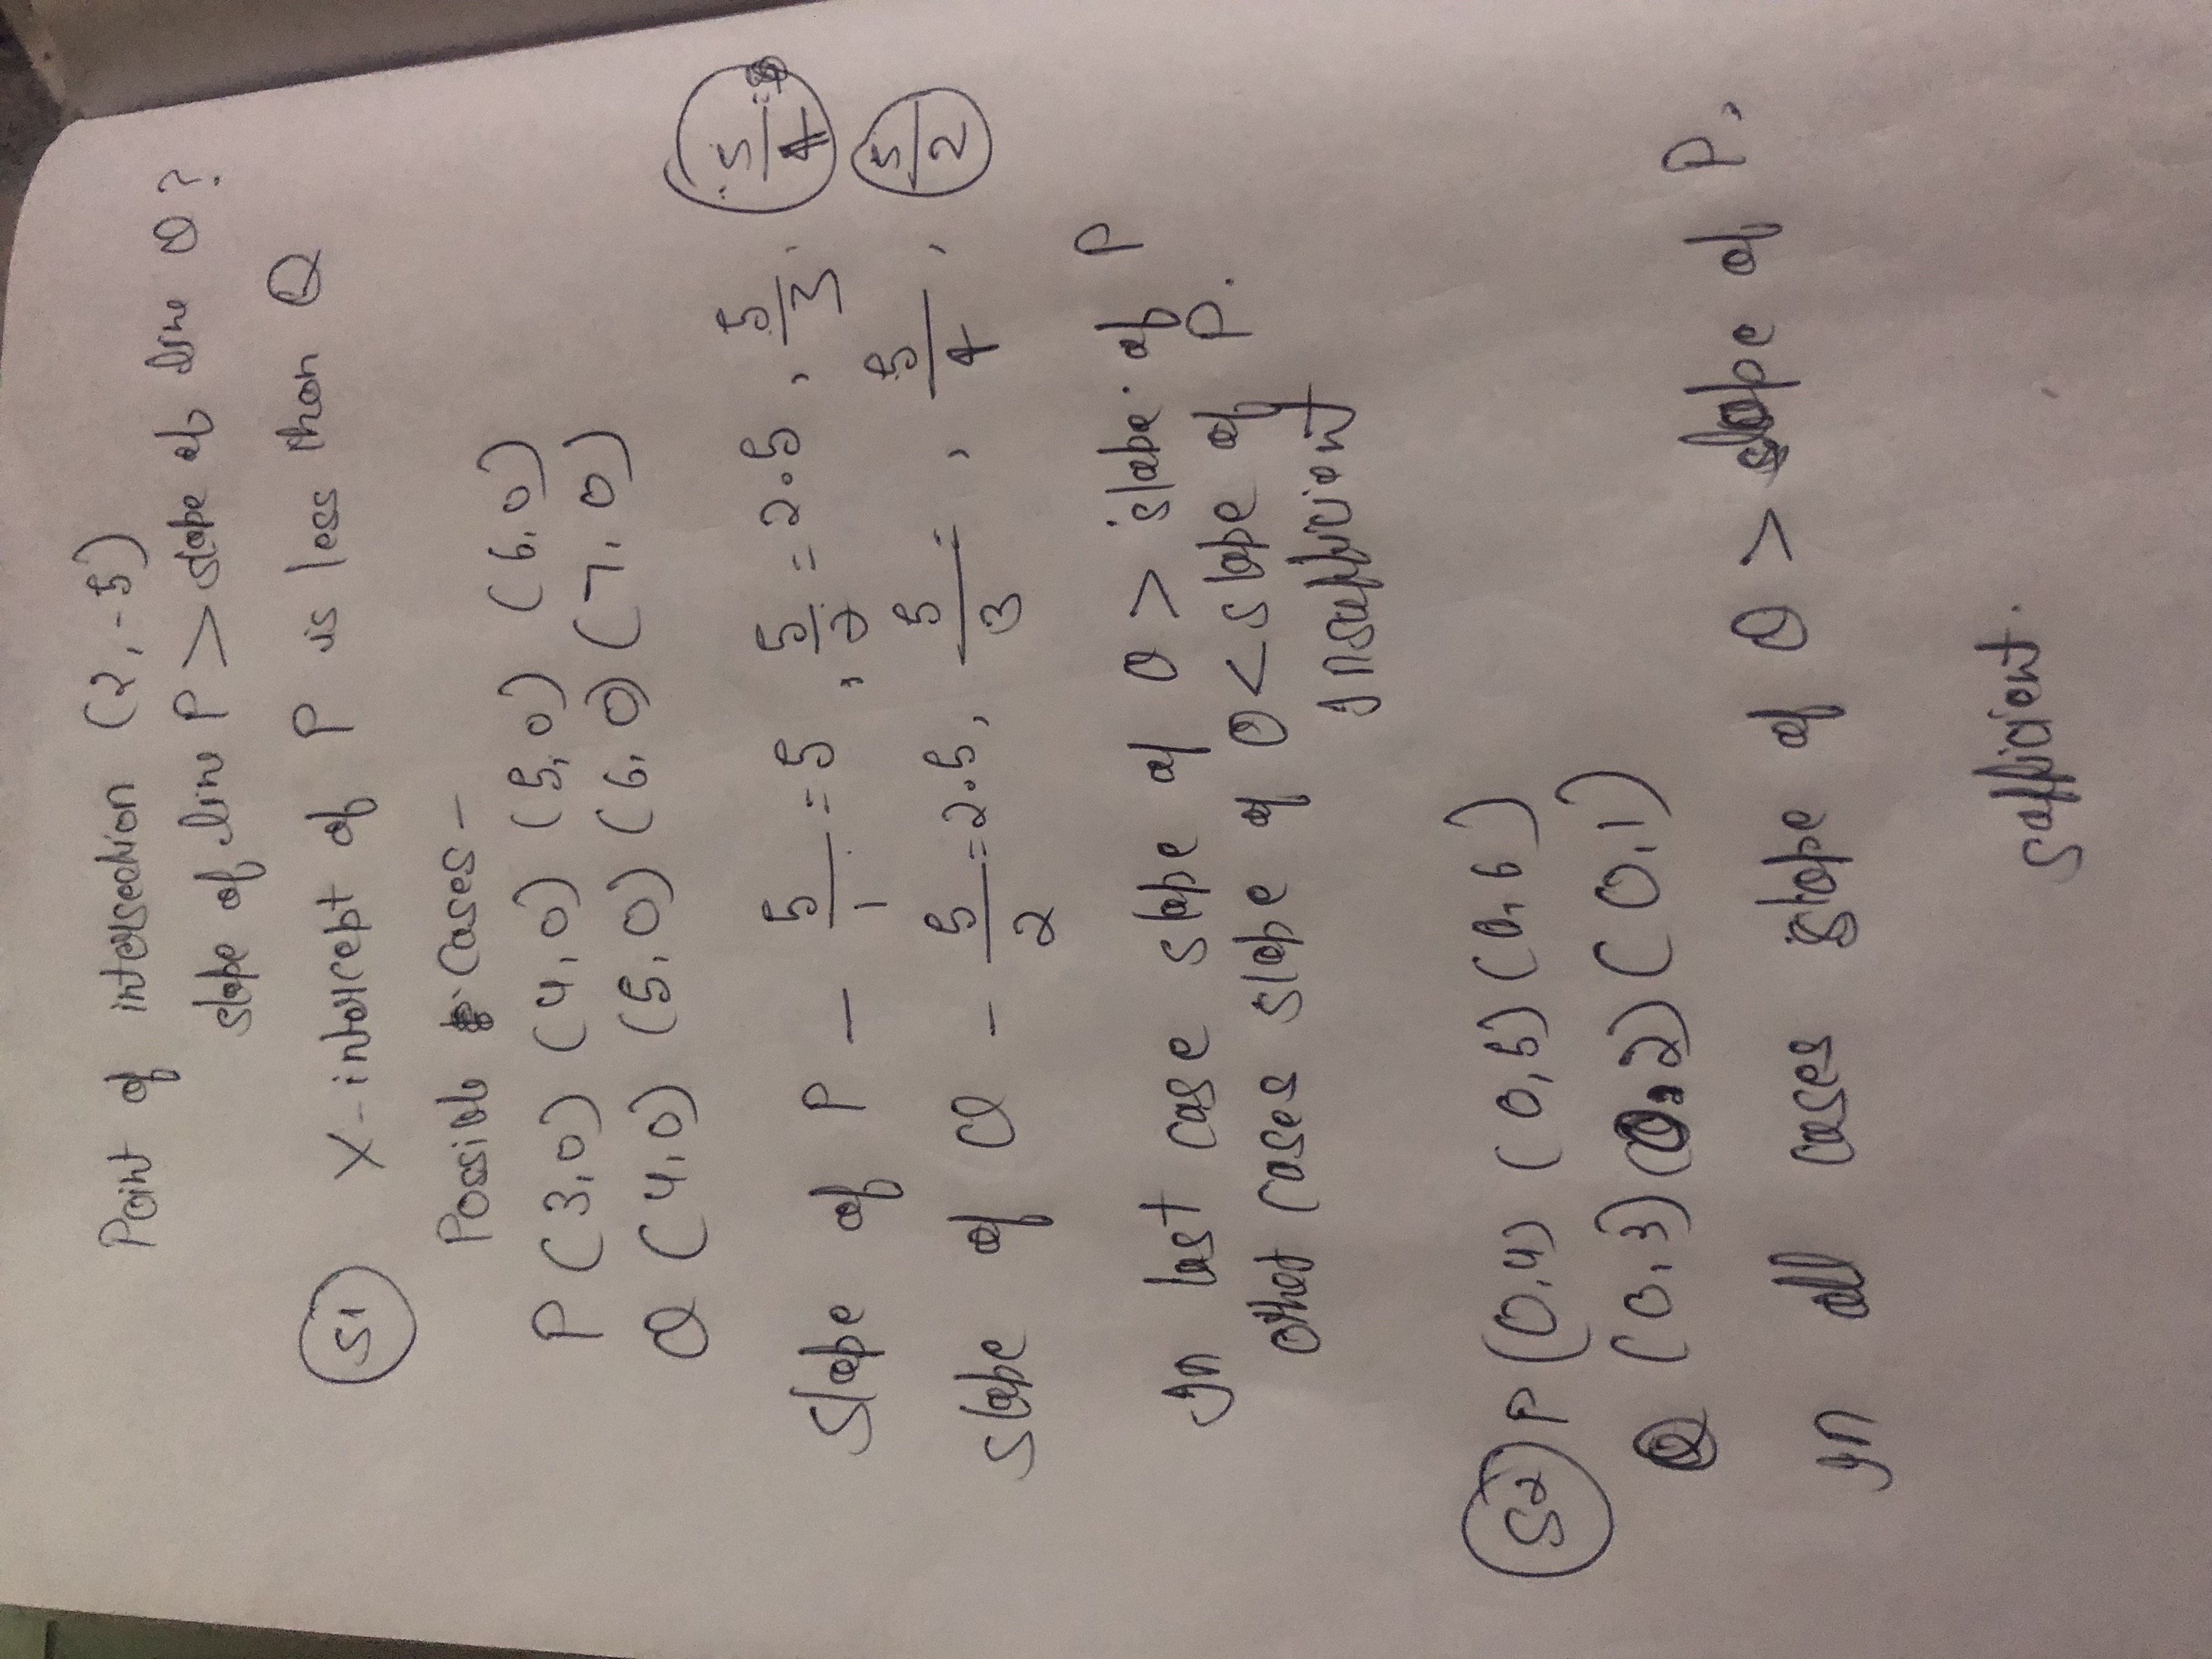 Point of intersection (2,-5)
slope of line P > slope of line Q?
S1 X-intercept of P is less than Q
Possible Cases-
P (3,0) (4,0) (5,0) (6,0)
Q (4,0) (5,0) (6,0) (7,0)
Slope of P - 5/1 = 5, 5/2 = 2.5, 5/3, 5/4
Slope of Q - 5/2 = 2.5, 5/3, 5/4, 5/2
In last case slope of Q > slope of P
other cases slope of Q < slope of P.
Insufficient
S2 P (0,4) (0,5) (0,6)
Q (0,3) (0,2) (0,1)
In all cases slope of Q > slope of P,
Sufficient.